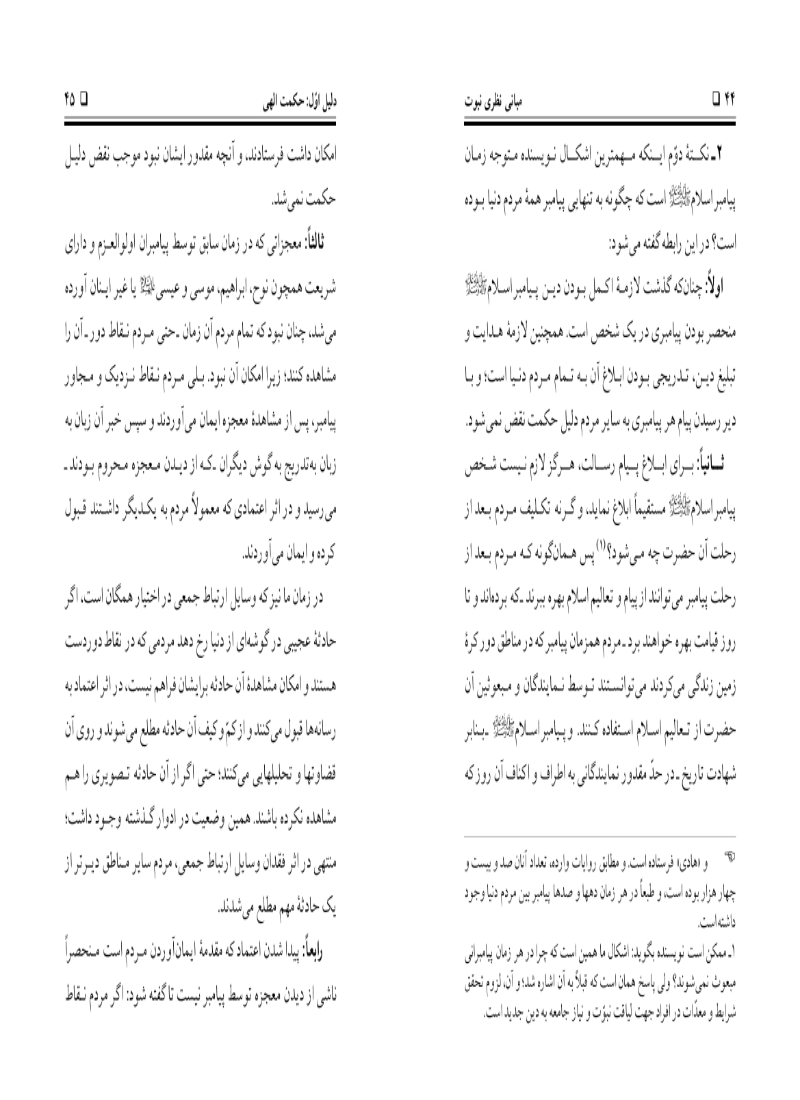 ۴۴ ❏ مبانی نظری نبوت
۲ـ نکتۀ دوّم اینکه مهمترین اشکال نویسنده متوجه زمان
پیامبر اسلام ﷺ است که چگونه به تنهایی پیامبر همۀ مردم دنیا بوده
است؟ در این رابطه گفته می‌شود:
اولاً: چنان‌که گذشت لازمۀ اکمل بودن دین پیامبر اسلام ﷺ
منحصر بودن پیامبری در یک شخص است. همچنین لازمۀ هدایت و
تبلیغ دین، تدریجی بودن ابلاغ آن به تمام مردم دنیا است؛ و با
دیر رسیدن پیام هر پیامبری به سایر مردم دلیل حکمت نقض نمی‌شود.
ثانیاً: برای ابلاغ پیام رسالت، هرگز لازم نیست شخص
پیامبر اسلام ﷺ مستقیماً ابلاغ نماید، و گرنه تکلیف مردم بعد از
رحلت آن حضرت چه می‌شود؟(۱) پس همان‌گونه که مردم بعد از
رحلت پیامبر می‌توانند از پیام و تعالیم اسلام بهره ببرند ـ که برده‌اند و تا
روز قیامت بهره خواهند برد ـ مردم همزمان پیامبر که در مناطق دور کرۀ
زمین زندگی می‌کردند می‌توانستند توسط نمایندگان و مبعوثین آن
حضرت از تعالیم اسلام استفاده کنند. و پیامبر اسلام ﷺ ـ بنابر
شهادت تاریخ ـ در حدّ مقدور نمایندگانی به اطراف و اکناف آن روز که
☜ و «هادی» فرستاده است. و مطابق روایات وارده، تعداد آنان صد و بیست و
چهار هزار بوده است، و طبعاً در هر زمان دهها و صدها پیامبر بین مردم دنیا وجود
داشته است.
۱ـ ممکن است نویسنده بگوید: اشکال ما همین است که چرا در هر زمان پیامبرانی
مبعوث نمی‌شوند؟ ولی پاسخ همان است که قبلاً به آن اشاره شد؛ و آن، لزوم تحقق
شرایط و معدّات در افراد جهت لیاقت نبوّت و نیاز جامعه به دین جدید است.
دلیل اوّل: حکمت الهی ❏ ۴۵
امکان داشت فرستادند، و آنچه مقدور ایشان نبود موجب نقض دلیل
حکمت نمی‌شد.
ثالثاً: معجزاتی که در زمان سابق توسط پیامبران اولوالعزم و دارای
شریعت همچون نوح، ابراهیم، موسی و عیسی یا غیر اینان آورده
می‌شد، چنان نبود که تمام مردم آن زمان ـ حتی مردم نقاط دور ـ آن را
مشاهده کنند؛ زیرا امکان آن نبود. بلی مردم نقاط نزدیک و مجاور
پیامبر، پس از مشاهدۀ معجزه ایمان می‌آوردند و سپس خبر آن زبان به
زبان به‌تدریج به گوش دیگران ـ که از دیدن معجزه محروم بودند ـ
می‌رسید و در اثر اعتمادی که معمولاً مردم به یکدیگر داشتند قبول
کرده و ایمان می‌آوردند.
در زمان ما نیز که وسایل ارتباط جمعی در اختیار همگان است، اگر
حادثۀ عجیبی در گوشه‌ای از دنیا رخ دهد مردمی که در نقاط دوردست
هستند و امکان مشاهدۀ آن حادثه برایشان فراهم نیست، در اثر اعتماد به
رسانه‌ها قبول می‌کنند و از کمّ و کیف آن حادثه مطلع می‌شوند و روی آن
قضاوتها و تحلیلهایی می‌کنند؛ حتی اگر از آن حادثه تصویری را هم
مشاهده نکرده باشند. همین وضعیت در ادوار گذشته وجود داشت؛
منتهی در اثر فقدان وسایل ارتباط جمعی، مردم سایر مناطق دیرتر از
یک حادثۀ مهم مطلع می‌شدند.
رابعاً: پیدا شدن اعتماد که مقدمۀ ایمان‌آوردن مردم است منحصراً
ناشی از دیدن معجزه توسط پیامبر نیست تا گفته شود: اگر مردم نقاط